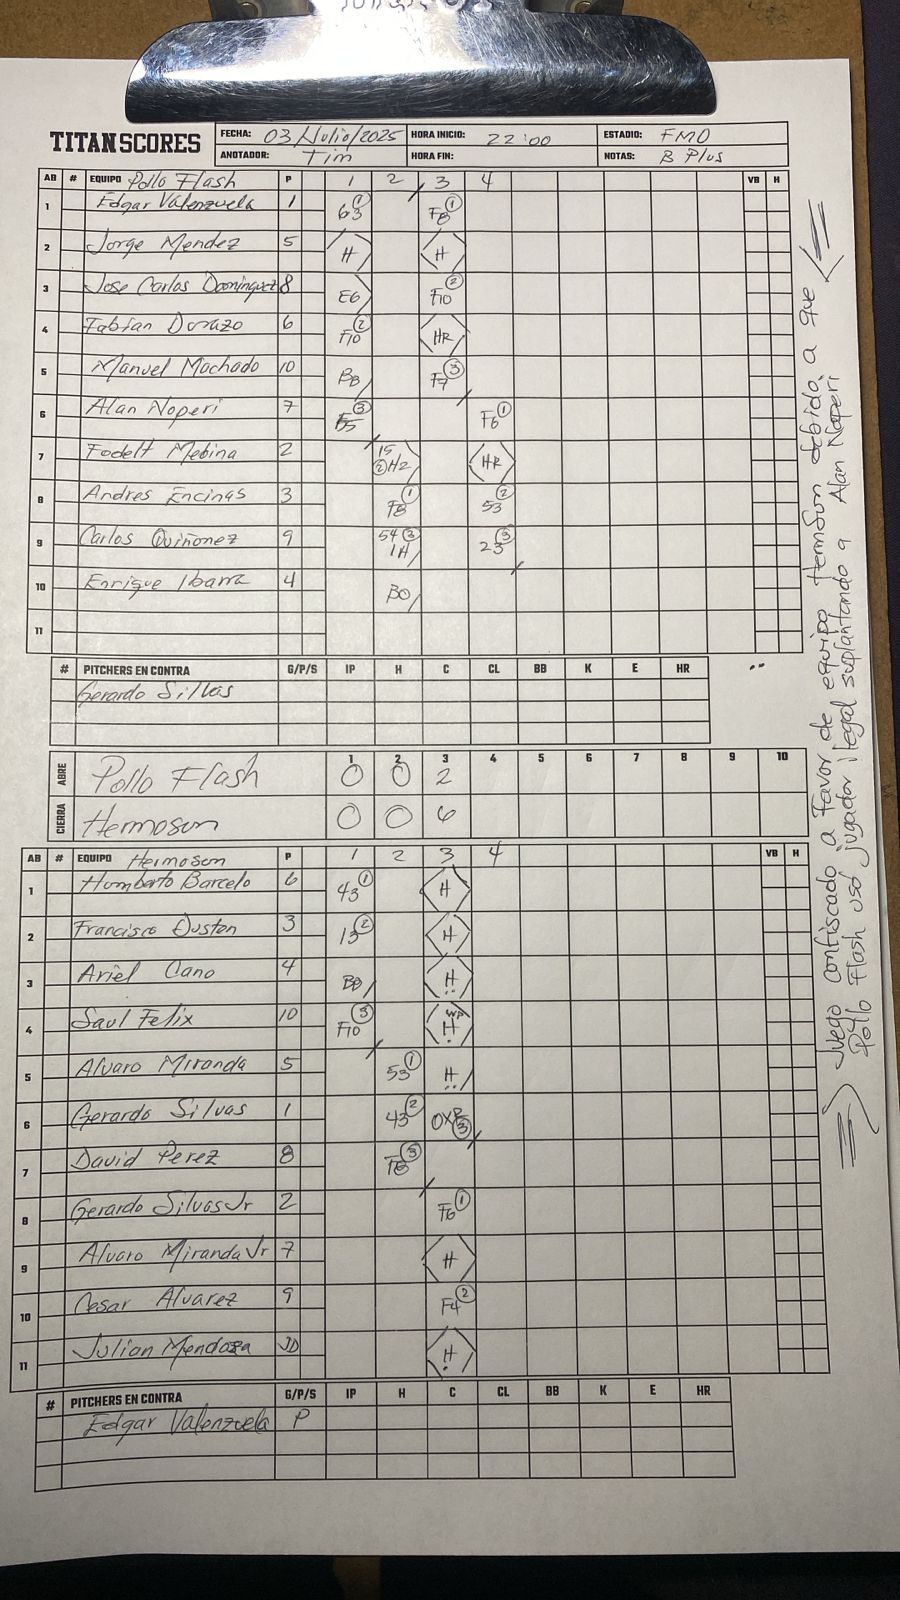 TITANSCORES
FECHA: 03/Julio/2025 HORA INICIO: 22:00 ESTADIO: FMO
ANOTADOR: Tim HORA FIN: NOTAS: B Plus
AB # EQUIPO Pollo Flash P 1 2 3 4 VB H
1 Edgar Valenzuela 1 63 ① F8 ①
2 Jorge Mendez 5 H H
3 Jose Carlos Dominguez 8 E6 F10 ②
4 Fabian Durazo 6 F10 ② HR
5 Manuel Machado 10 BB F7 ③
6 Alan Noperi 7 ③ F6 ①
7 Fodelt Medina 2 HR
8 Andres Encinas 3 F8 ① 53 ②
9 Carlos Quiñonez 9 54 ③ 1H 23 ③
10 Enrique Ibarra 4 BO
11
# PITCHERS EN CONTRA G/P/S IP H C CL BB K E HR
Gerardo Silvas
1 2 3 4 5 6 7 8 9 10
ABRE Pollo Flash 0 0 2
CIERRA Hermoson 0 0 6
AB # EQUIPO Hermoson P 1 2 3 4 VB H
1 Humberto Barcelo 6 43 ① H
2 Francisco Duston 3 13 ② H
3 Ariel Cano 4 BB H
4 Saul Felix 10 F10 ③ WP H
5 Alvaro Miranda 5 53 ① H
6 Gerardo Silvas 1 43 ② OXR ③
7 David Perez 8 F8 ③
8 Gerardo Silvas Jr 2 F6 ①
9 Alvaro Miranda Jr 7 H
10 Cesar Alvarez 9 F4 ②
11 Julian Mendoza JD H
# PITCHERS EN CONTRA G/P/S IP H C CL BB K E HR
Edgar Valenzuela P
Juego confiscado a favor de equipo Hermoson debido a que
Pollo Flash usó jugador ilegal suplantando a Alan Noperi